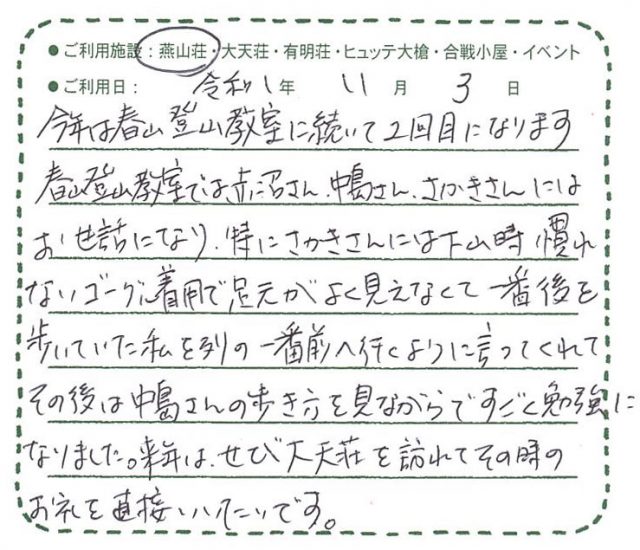 ●ご利用施設：燕山荘・大天荘・有明荘・ヒュッテ大槍・合戦小屋・イベント
●ご利用日：令和1年11月3日
今年は春山登山教室に続いて2回目になります
春山登山教室では赤沼さん、中島さん、さかきさんには
お世話になり、特にさかきさんには下山時慣れ
ないゴーグル着用で足元がよく見えなくて一番後を
歩いていた私を列の一番前へ行くように言ってくれて
その後は中島さんの歩き方を見ながらですごく勉強に
なりました。来年は、ぜひ大天荘を訪れてその時の
お礼を直接いいたいです。